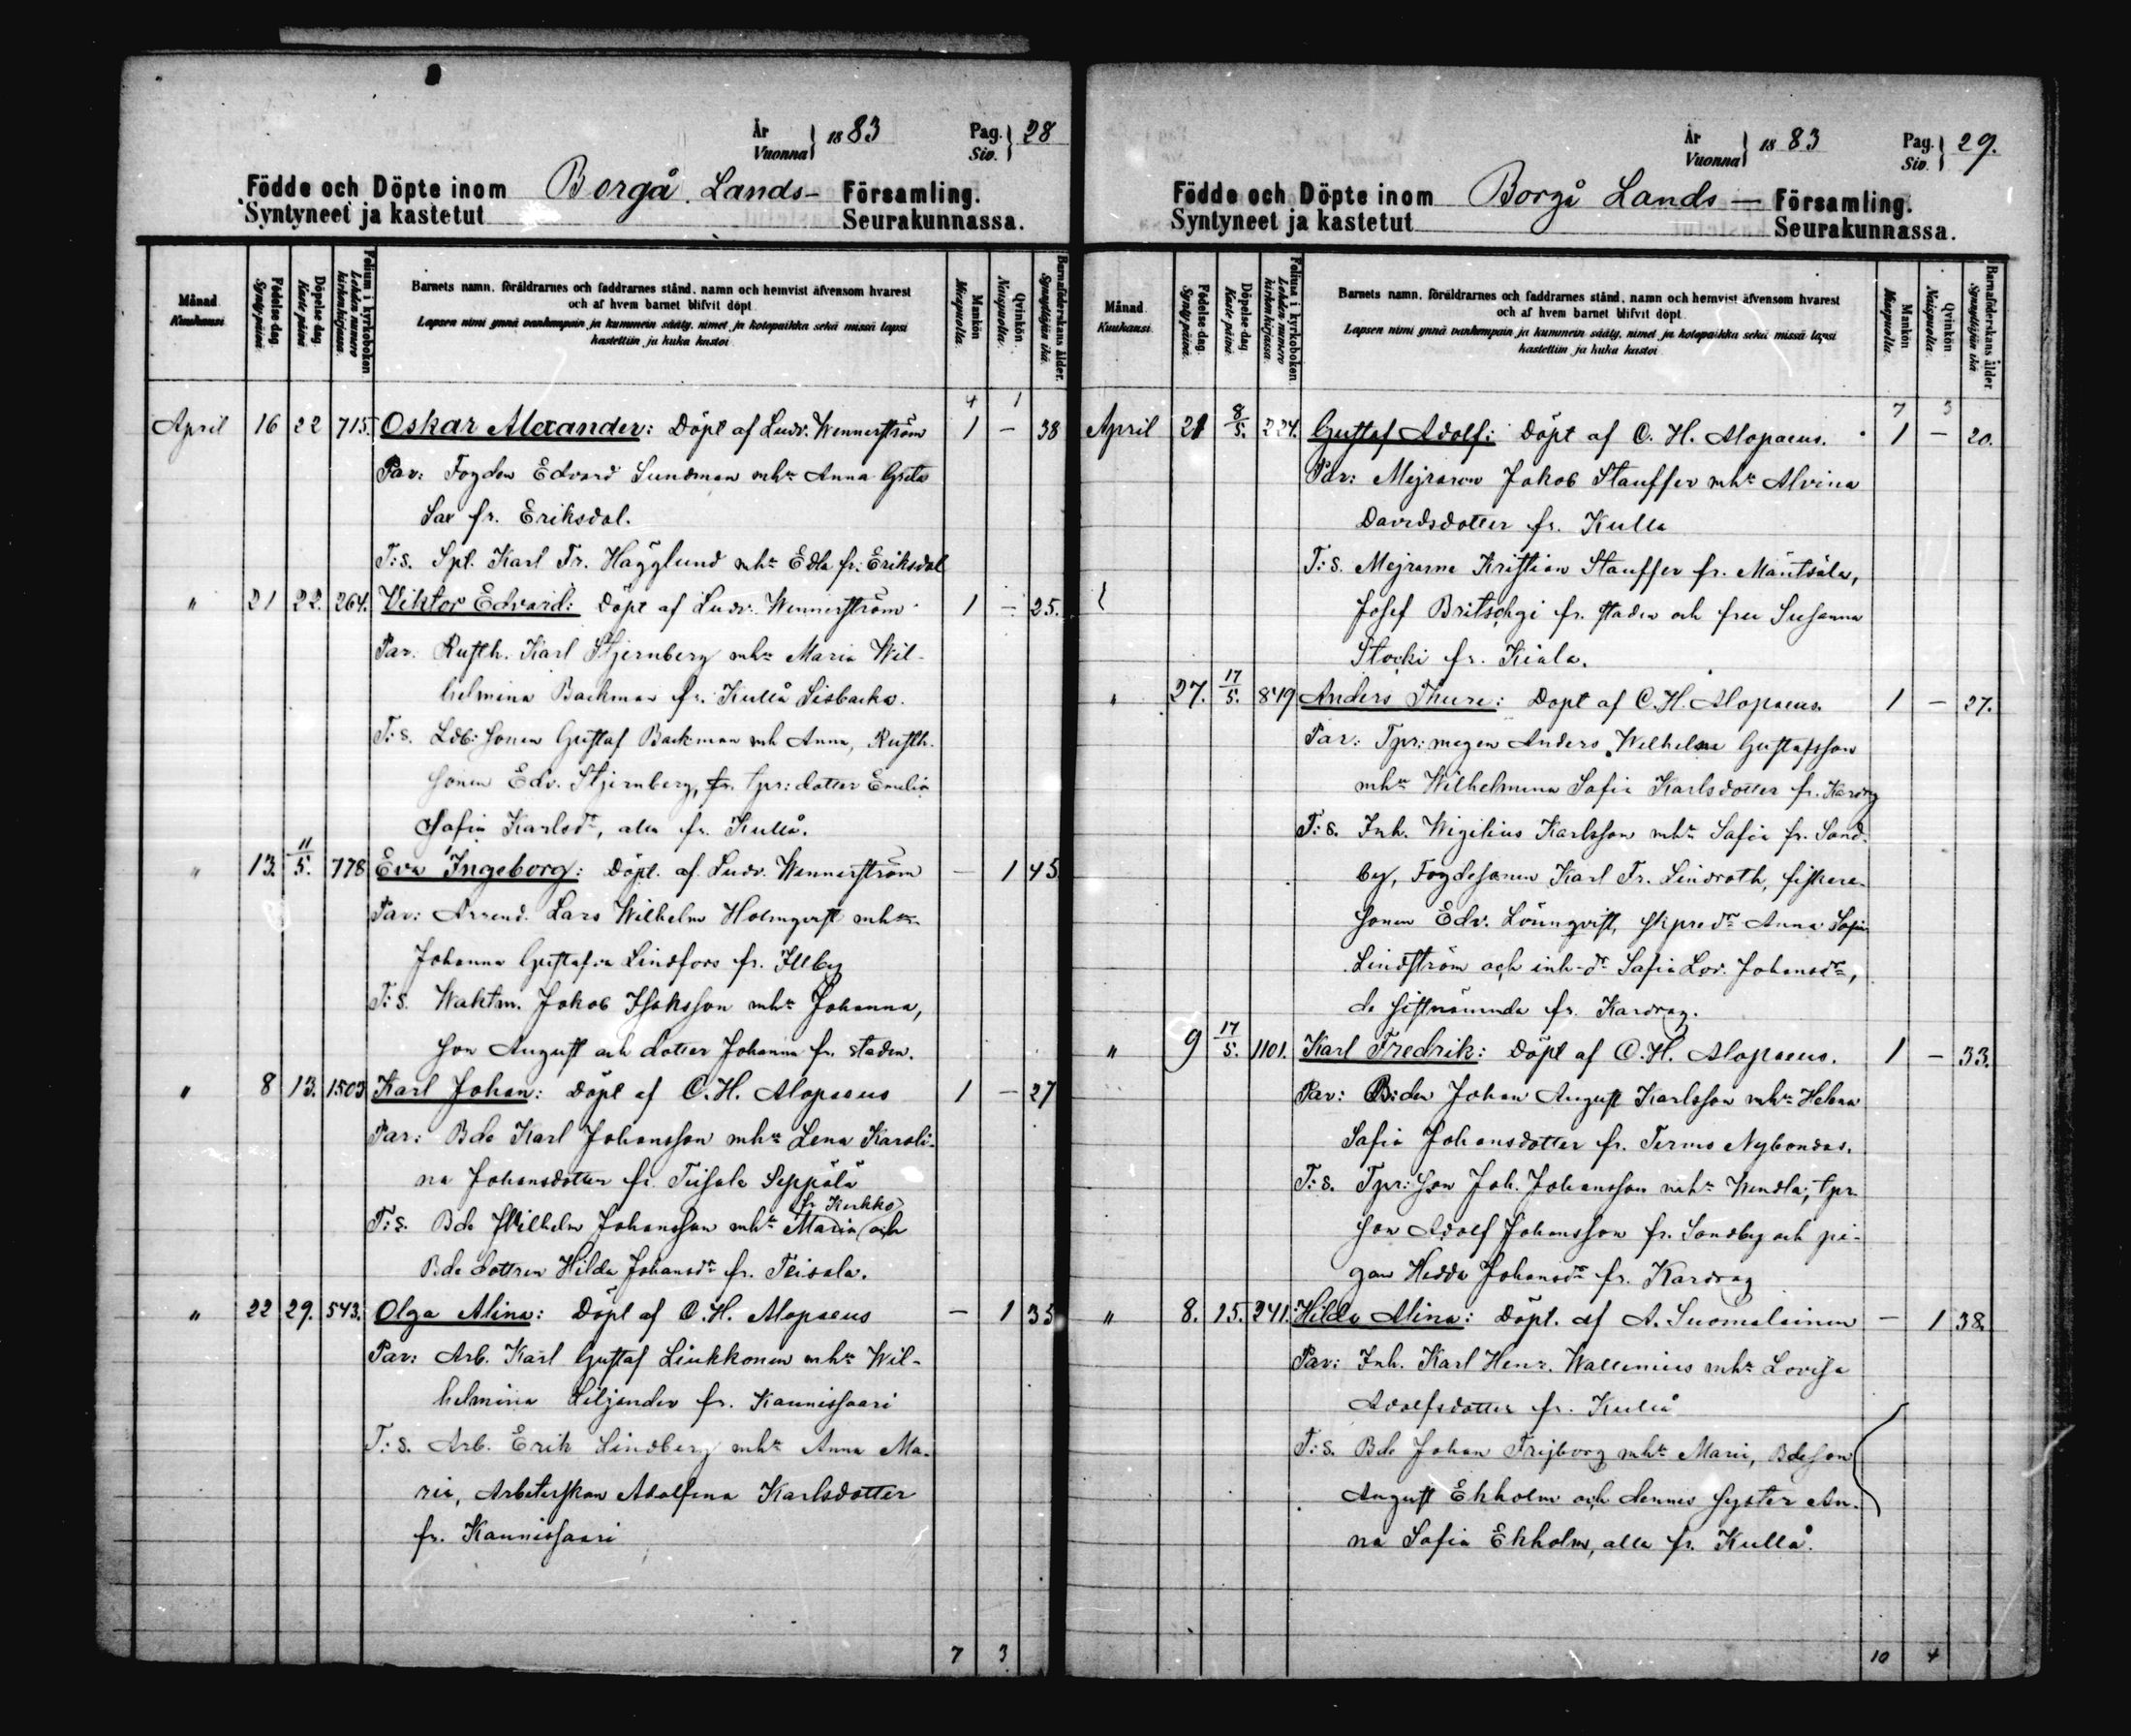 År
Vuonna } 1883 Pag.
Siv. } 28
Födde och Döpte inom Borgå Lands- Församling.
Syntyneet ja kastetut Seurakunnassa.
Månad
Kuukausi
Födelse-dag.
Syntypäinä.
Döpelse dag.
Kaste päinä
Folium i kyrkobokon
Lehden numero
kirkonkirjassa.
Barnets namn, föräldrarnes och faddrarnes stånd, namn och hemvist äfvensom hvarest
och af hvem barnet blifvit döpt.
Lapsen nimi ynnä vanhempain ja kummein sääty, nimet ja kotopaikka sekä missä lapsi
kastettiin ja kuka kastoi
Mankön
Miespuolta.
Qvinkön
Naispuolta.
Barnaföderskans ålder.
Synnyttäjän ikä.
4 1
April 16 22 715. Oskar Alexander: Döpt af Ludv. Wennerström 1 – 38
Par: Fogden Edvard Sundman mhu Anna Greta
Sax fr. Eriksdal.
T:s. Spl. Karl Fr. Hägglund mhu Edla fr. Eriksdal
" 21 22. 264. Viktor Edvard: Döpt af Ludv. Wennerström 1 – 25.
Par. Rusth. Karl Stjernberg mhu Maria Wil-
helmina Backman fr. Kullå Sisbacka.
T:s. Ldb: sonen Gustaf Backman mh Anna, Rusth.
sonen Edv. Stjernberg, fr. tpr: dotter Emilia
Sofia Karlsdr, alla fr. Kullå.
" 13. 11/5. 778 Eva Ingeborg: Döpt. af Ludv. Wennerström – 1 45
Par: Arrend. Lars Wilhelm Holmqvist mhu
Johanna Gustafva Lindfors fr. Illby
T:s. Waktm. Jakob Isaksson mhu Johanna,
son August och dotter Johanna fr. staden.
" 8 13. 1503 Karl Johan: Döpt af C. H. Alopaeus 1 – 27
Par: Bde Karl Johansson mhu Lena Karoli-
na Johansdotter fr. Teisala Seppälä
fr Kerkko
T:s. Bde Wilhelm Johansson mhu Maria och
Bde dottren Hilda Johansdr fr. Teisala.
" 22 29. 543. Olga Alina: Döpt af C. H. Alopaeus – 1 35
Par: Arb. Karl Gustaf Liukkonen mhu Wil-
helmina Liljander fr. Kaunissaari
T:s. Arb. Erik Lindberg mhu Anna Ma-
ria, Arbeterskan Adolfina Karlsdotter
fr. Kaunissaari
7 3
År
Vuonna } 1883 Pag.
Siv. } 29.
Födde och Döpte inom Borgå Lands – Församling.
Syntyneet ja kastetut Seurakunnassa.
Månad
Kuukausi.
Födelse-dag.
Syntypäinä.
Döpelse dag.
Kaste päinä.
Folium i kyrkobokon.
Lehden numero
kirkonkirjassa.
Barnets namn, föräldrarnes och faddrarnes stånd, namn och hemvist äfvensom hvarest
och af hvem barnet blifvit döpt.
Lapsen nimi ynnä vanhempain ja kummein sääty, nimet ja kotopaikka sekä missä lapsi
kastettiin ja kuka kastoi
Mankön
Miespuolta.
Qvinkön
Naispuolta.
Barnaföderskans ålder.
Synnyttäjän ikä.
7 3
April 21 8/5. 224. Gustaf Adolf: Döpt af C. H. Alopaeus. 1 – 20.
Par: Mejraren Jakob Stauffer mhu Alvina
Davidsdotter fr. Kulla
T:s. Mejrarne Kristian Stauffer fr. Mäntsälä,
Josef Britschgi fr. staden och fru Susanna
Stocki fr. Kiala.
" 27. 17/5. 879 Anders Thure: Döpt af C. H. Alopaeus. 1 – 27.
Par: Tpr: mågen Anders Wilhelm Gustafsson
mhu Wilhelmina Sofia Karlsdotter fr. Kardrag
T:s. Inh. Wigilius Karlsson mhu Sofia fr. Sand-
by, Fogdesonen Karl Fr. Lindroth, fiskare-
sonen Edv. Lönnqvist, skpredr Anna Sofia
Lindström och inh-dr Sofia Lov. Johansdr,
de sistnämnda fr. Kardrag.
" 9 17/5. 1101. Karl Fredrik: Döpt af C. H. Alopaeus. 1 – 33.
Par: B:den Johan August Karlsson mhu Helena
Sofia Johansdotter fr. Terms Nybondas.
T:s. Tpr: son Joh. Johansson mhu Wendla, tpr.
son Adolf Johansson fr. Sandby och pi-
gan Hedda Johansdr fr. Kardrag
" 8. 15. 241. Hilda Alina: Döpt. af A. Suomalainen – 1 38.
Par: Inh. Karl Henr. Wallenius mhu Lovisa
Adolfsdotter fr. Kullå
T:s. Bde Johan Frijborg mhu Maria, Bdeson
August Ekholm och dennes syster An-
na Sofia Ekholm, alla fr. Kullå.
10 4